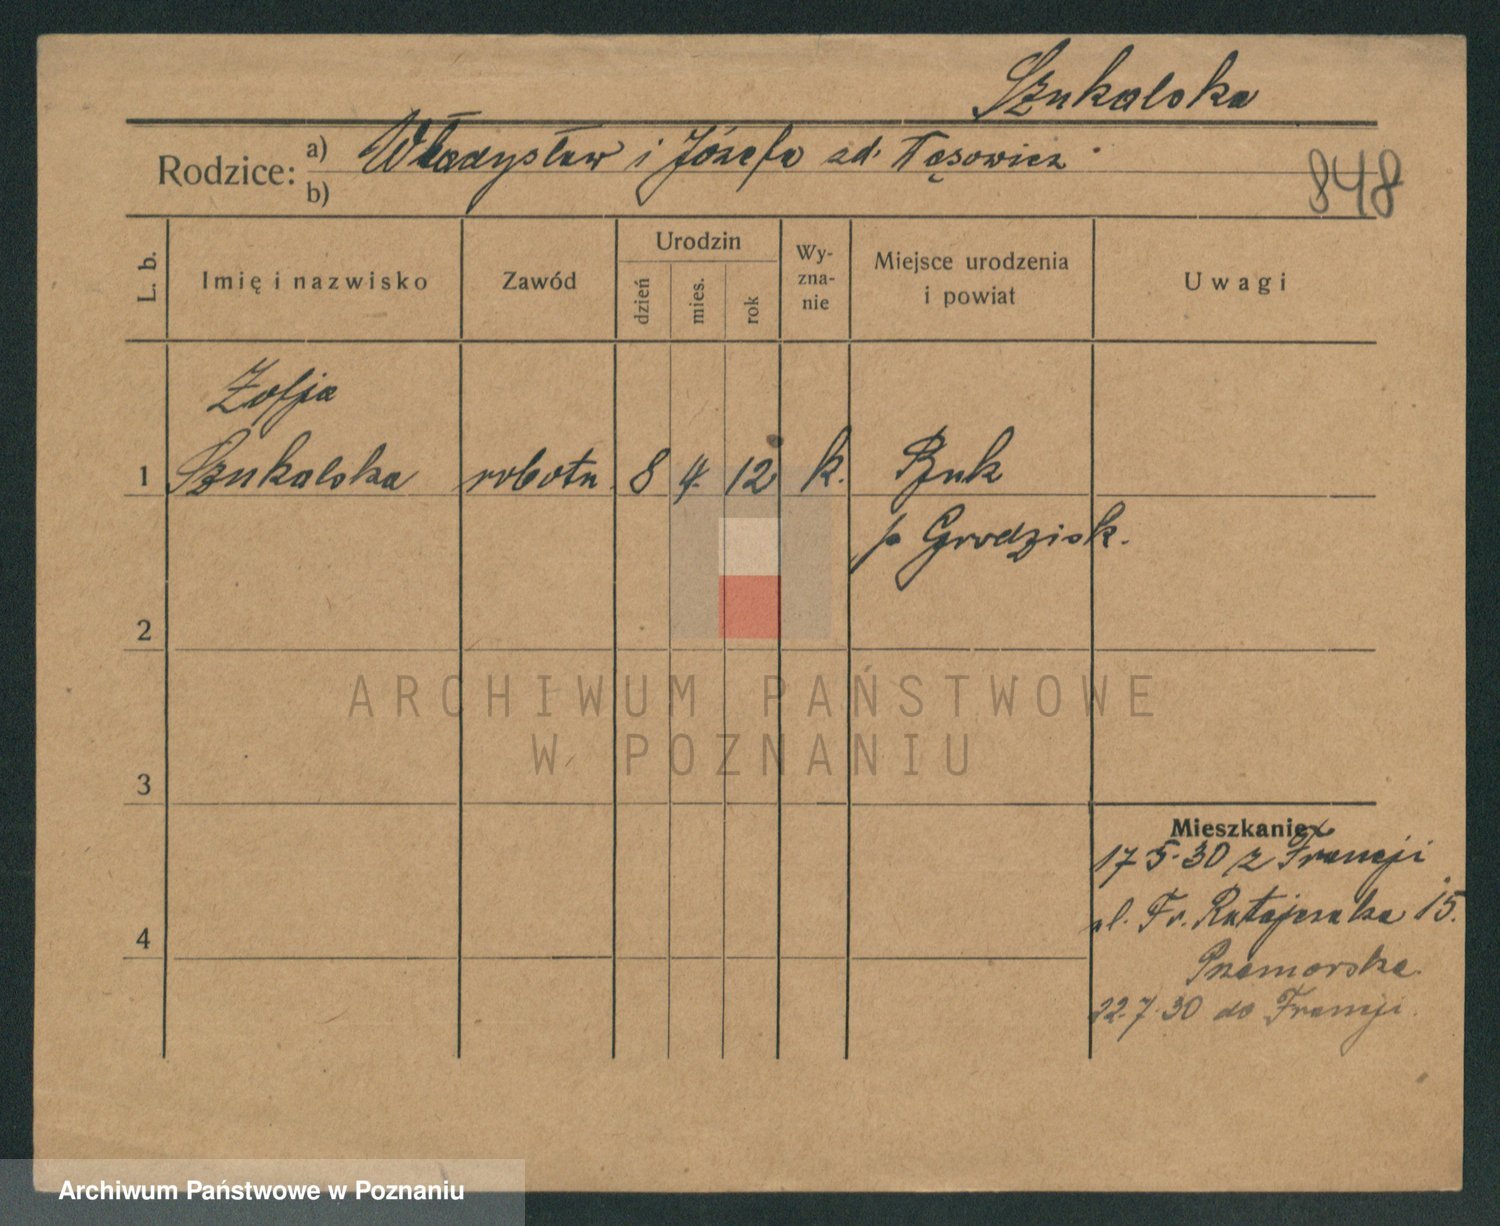 Szukalska
Rodzice: a) Władysław i Józefa zd.
b)
848
L. b. Imię i nazwisko Zawód Urodzin dzień mies. rok Wy-zna-nie Miejsce urodzenia i powiat Uwagi
Zofja
1 Szukalska robotn. 8 4. 12 k. Buk
p Grodzisk.
2
ARCHIWUM PAŃSTWOWE
W POZNANIU
3
Mieszkanie
17 5. 30 z Francji
ul. Fr. Ratajczaka 15.
22. 7. 30 do Francji.
4
Archiwum Państwowe w Poznaniu